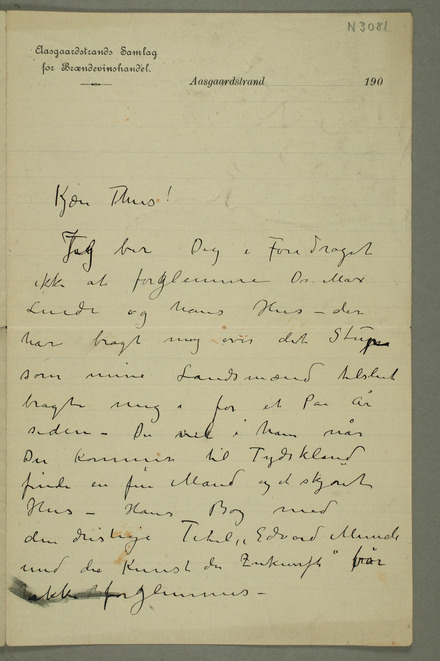 N 3081
Aasgaardstrands Samlag
for Brændevinshandel.
Aasgaardstrand 190
Kjære Thiis!
Jeg ber Dig i Foredraget
ikke at forglemme Dr. Max
Linde og hans Hus – der
har bragt mig over det Stup
som mine Landsmænd tilslut
bragte mig i for et Par År
siden – Du vil i ham når
Du kommer til Tydskland
finde en fin Mand og et skjønt
Hus – Hans Bog med
den dristige Titel „Edvard Munch
und die Kunst der Zukunft" bør
ikke forglemmes –